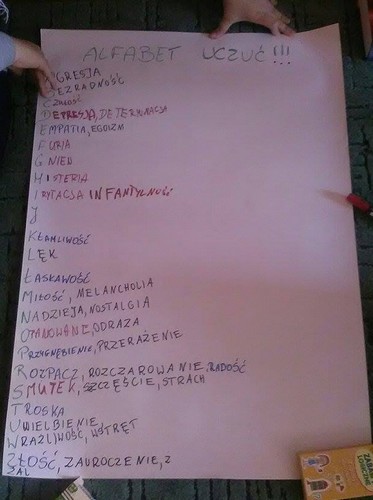 ALFABET UCZUĆ!!!
AGRESJA
BEZRADNOŚĆ
CZUŁOŚĆ
DEPRESJA, DETERMINACJA
EMPATIA, EGOIZM
FURIA
GNIEW
HISTERIA
IRYTACJA INFANTYLNOŚĆ
J
KŁAMLIWOŚĆ
LĘK
ŁASKAWOŚĆ
MIŁOŚĆ, MELANCHOLIA
NADZIEJA, NOSTALGIA
ODRAZA
PRZYGNĘBIENIE, PRZERAŻENIE
ROZPACZ, ROZCZAROWANIE, RADOŚĆ
SMUTEK, SZCZĘŚCIE, STRACH
TROSKA
UWIELBIENIE
WRAŻLIWOŚĆ, WSTRĘT
ZŁOŚĆ, ZAUROCZENIE, Z
ŻAL